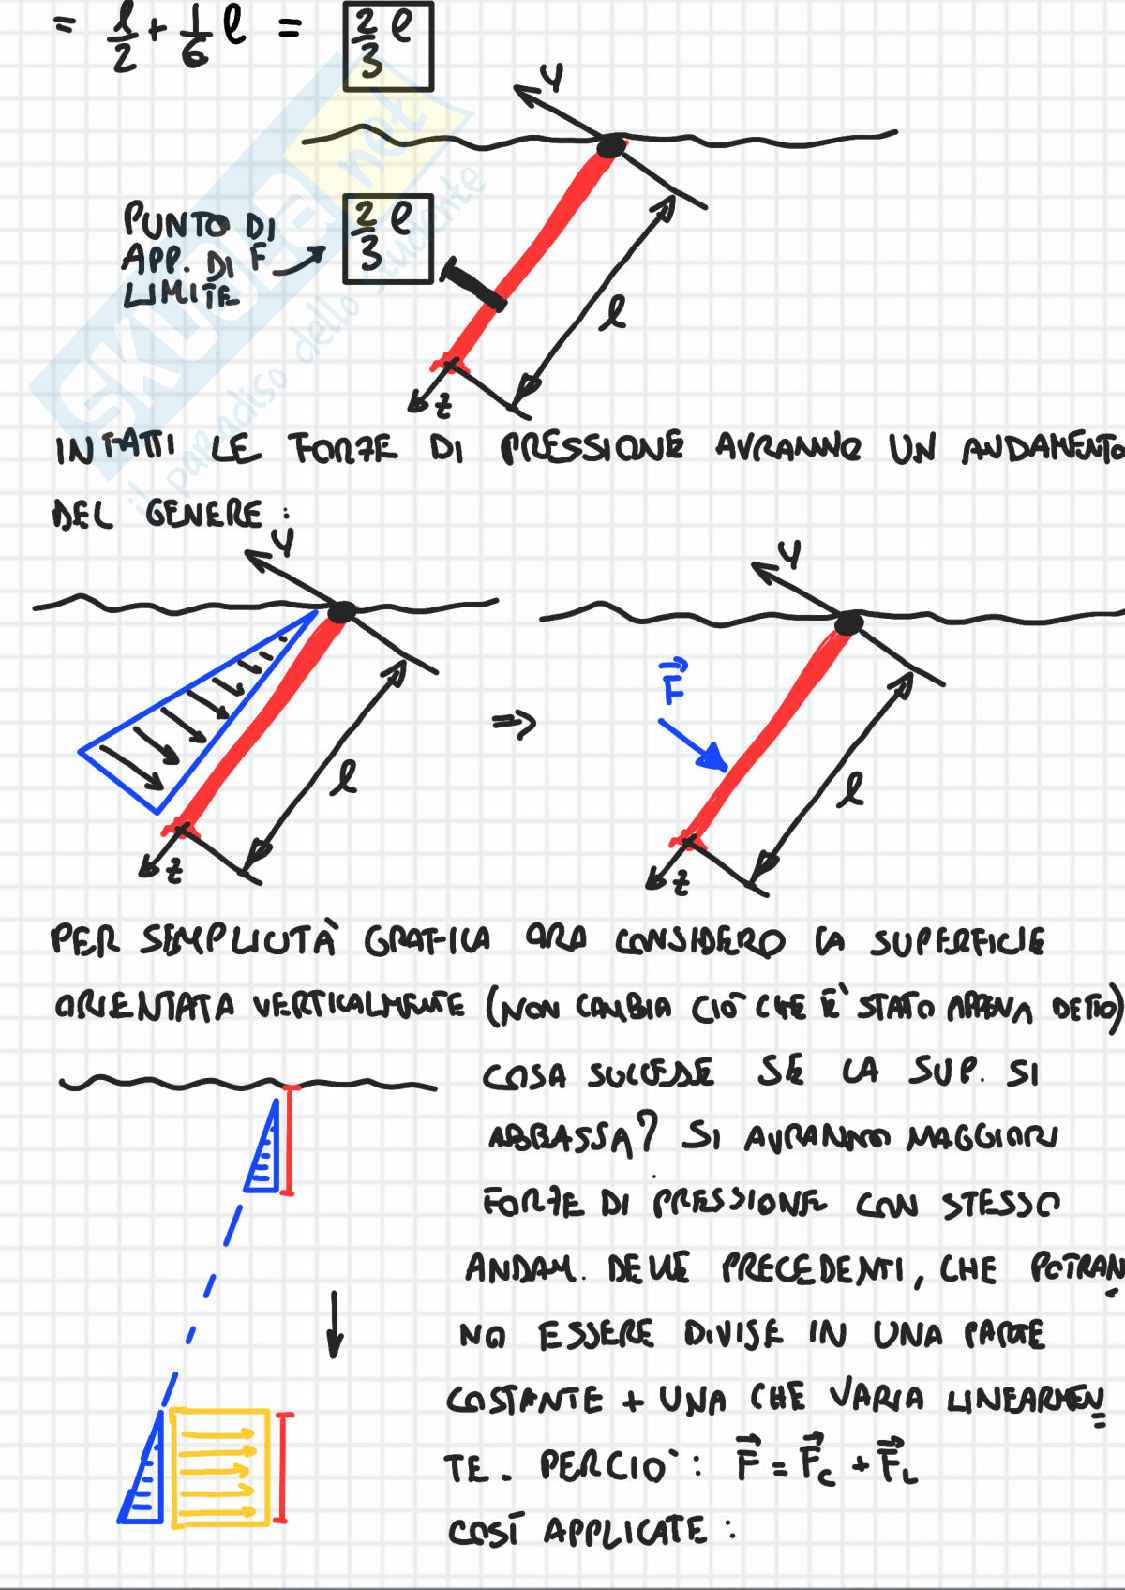 = l/2 + 1/6 l = 2/3 l
y
PUNTO DI
APP. DI F → 2/3 l
LIMITE
l
z
INFATTI LE FORZE DI PRESSIONE AVRANNO UN ANDAMENTO
DEL GENERE:
y
y
F
=>
l
l
z
z
PER SEMPLICITÀ GRAFICA ORA CONSIDERO LA SUPERFICIE
ORIENTATA VERTICALMENTE (NON CAMBIA CIÒ CHE È STATO APPENA DETTO)
COSA SUCCEDE SE LA SUP. SI
ABBASSA? SI AVRANNO MAGGIORI
FORZE DI PRESSIONE CON STESSO
ANDAM. DELLE PRECEDENTI, CHE POTRAN
NO ESSERE DIVISE IN UNA PARTE
COSTANTE + UNA CHE VARIA LINEARMEN
TE. PERCIÒ: F = Fc + FL
COSÌ APPLICATE:
SKUOLA.net
il paradiso dello studente